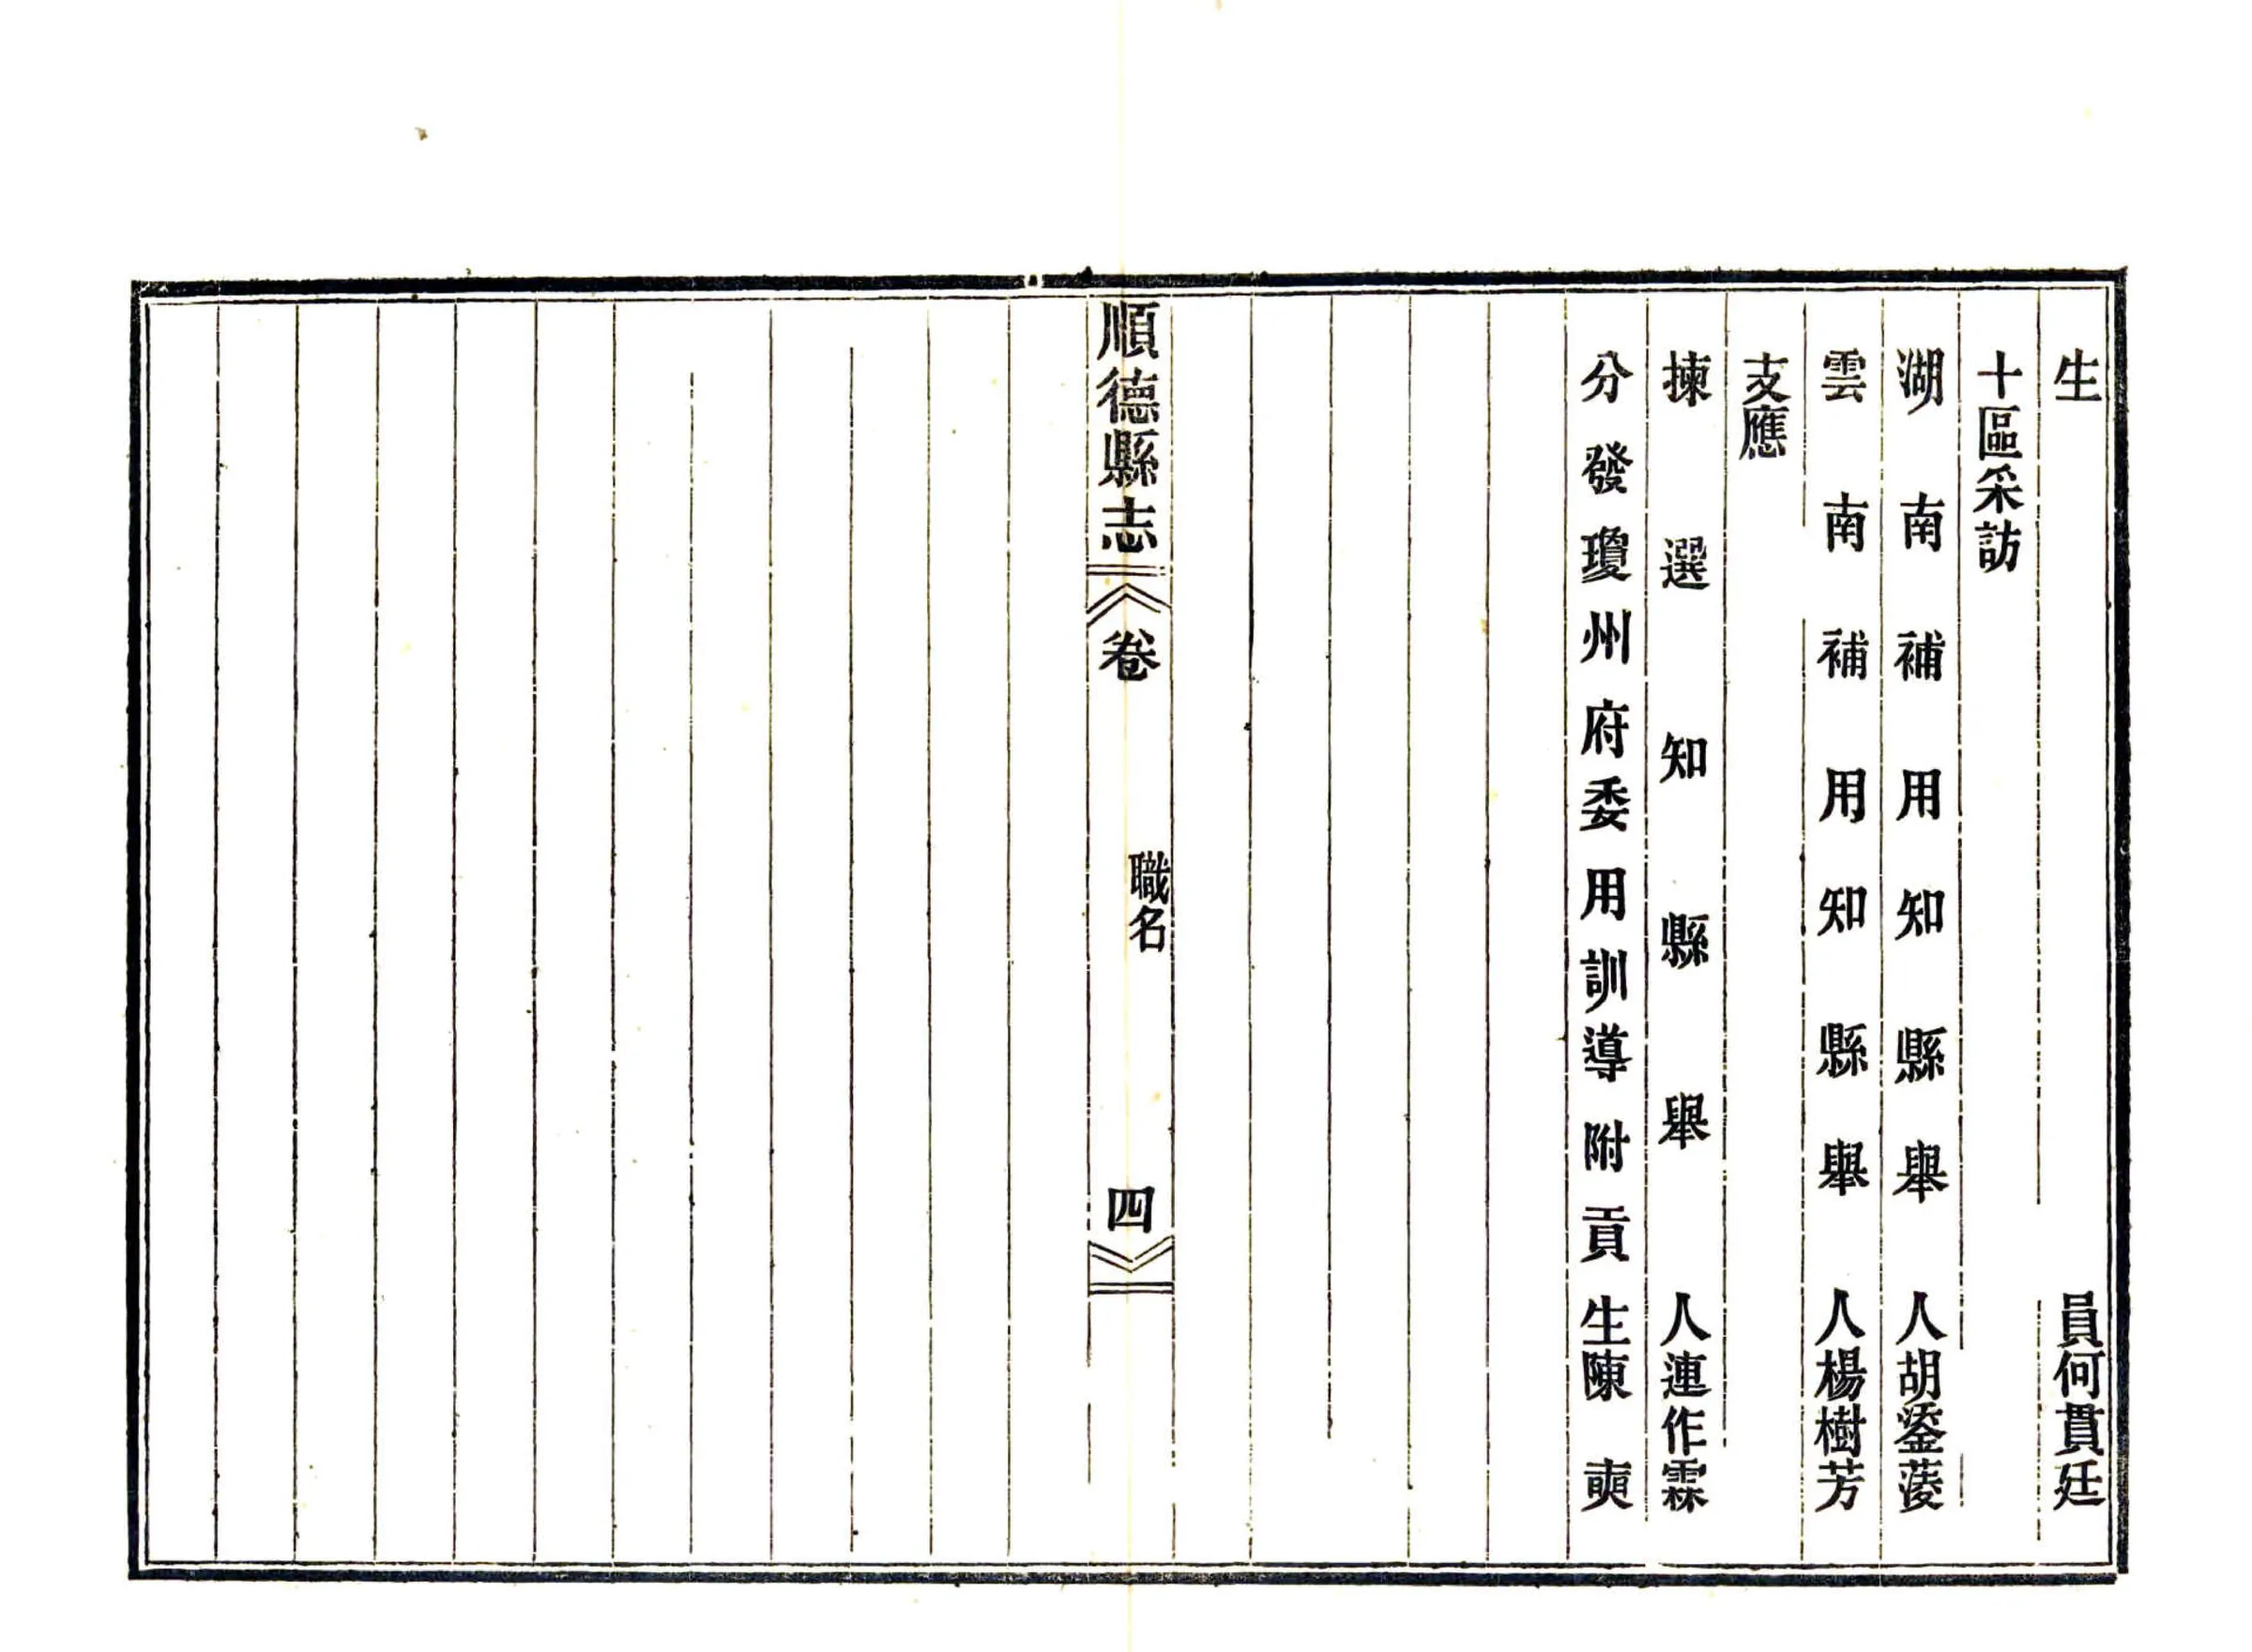 生員何貫廷
十區采訪
湖南補用知縣舉人胡鋈蔆
雲南補用知縣舉人楊樹芳
支應
揀選知縣舉人連作霖
分發瓊州府委用訓導附貢生陳奭
順德縣志 卷 職名 四